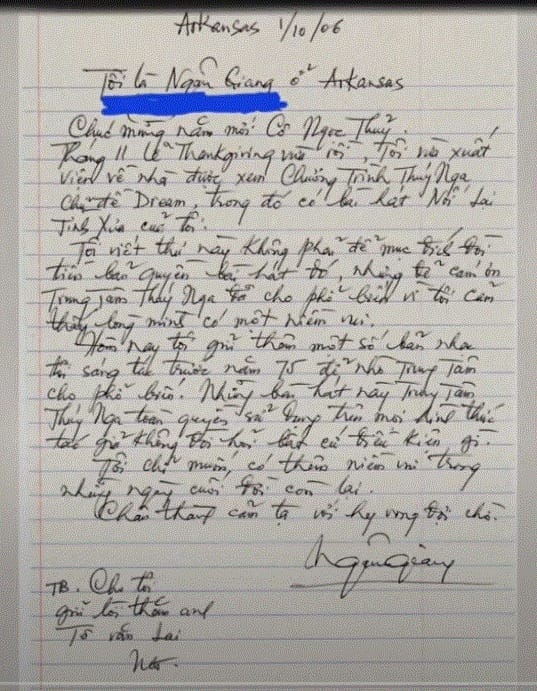 Arkansas 1/10/06
Tôi là Ngân Giang ở Arkansas
Chúc mừng năm mới Cô Ngọc Thuỷ.
Tháng 11 lễ Thankgiving vừa rồi, Tôi vừa xuất
viện về nhà được xem Chương Trình Thuý Nga
chủ đề Dream, trong đó có bài hát Nối Lại
Tình Xưa của tôi.
Tôi viết thư này không phải để mục đích đòi
tiền bản quyền bài hát đó, nhưng để cám ơn
Trung Tâm Thuý Nga đã cho phổ biến vì tôi cảm
thấy lòng mình có một niềm vui.
Hôm nay tôi gửi thêm một số bản nhạc
tôi sáng tác trước năm 75 để nhờ Trung Tâm
cho phổ biến. Những bài hát này Trung Tâm
Thuý Nga toàn quyền sử dụng trên mọi hình thức
tác giả không đòi hỏi bất cứ điều kiện gì.
Tôi chỉ muốn, có thêm niềm vui trong
những ngày cuối đời còn lại.
Chân thành cảm tạ với hy vọng đợi chờ.
Ngân Giang
TB. Cho tôi
gửi lời thăm anh
Tô văn Lai